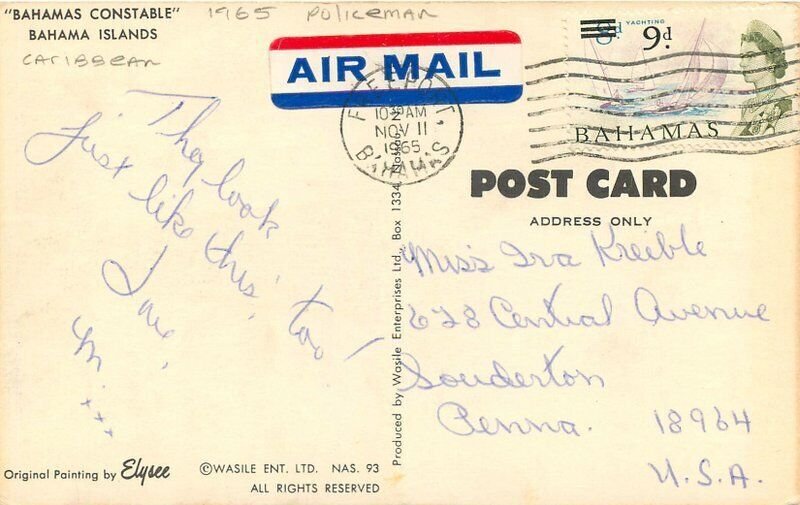 "BAHAMAS CONSTABLE"
BAHAMA ISLANDS
CARIBBEAN
1965 POLICEMAN
AIR MAIL
FREEPORT,
10 30 AM
NOV 11
1965
BAHAMAS
YACHTING
8d 9d.
BAHAMAS
They look
just like this, too!
Love,
M.
xxx
POST CARD
ADDRESS ONLY
Miss Iva Kreible
628 Central Avenue
Souderton
Penna. 18964
U.S.A.
Produced by Wasile Enterprises Ltd., Box 1334, Nassau
Original Painting by Elysee
©WASILE ENT. LTD. NAS. 93
ALL RIGHTS RESERVED